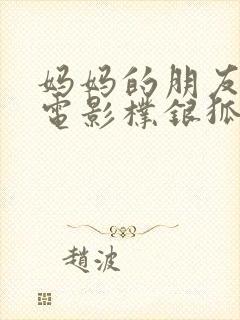 妈妈的朋友
電影樸银狐
趙波